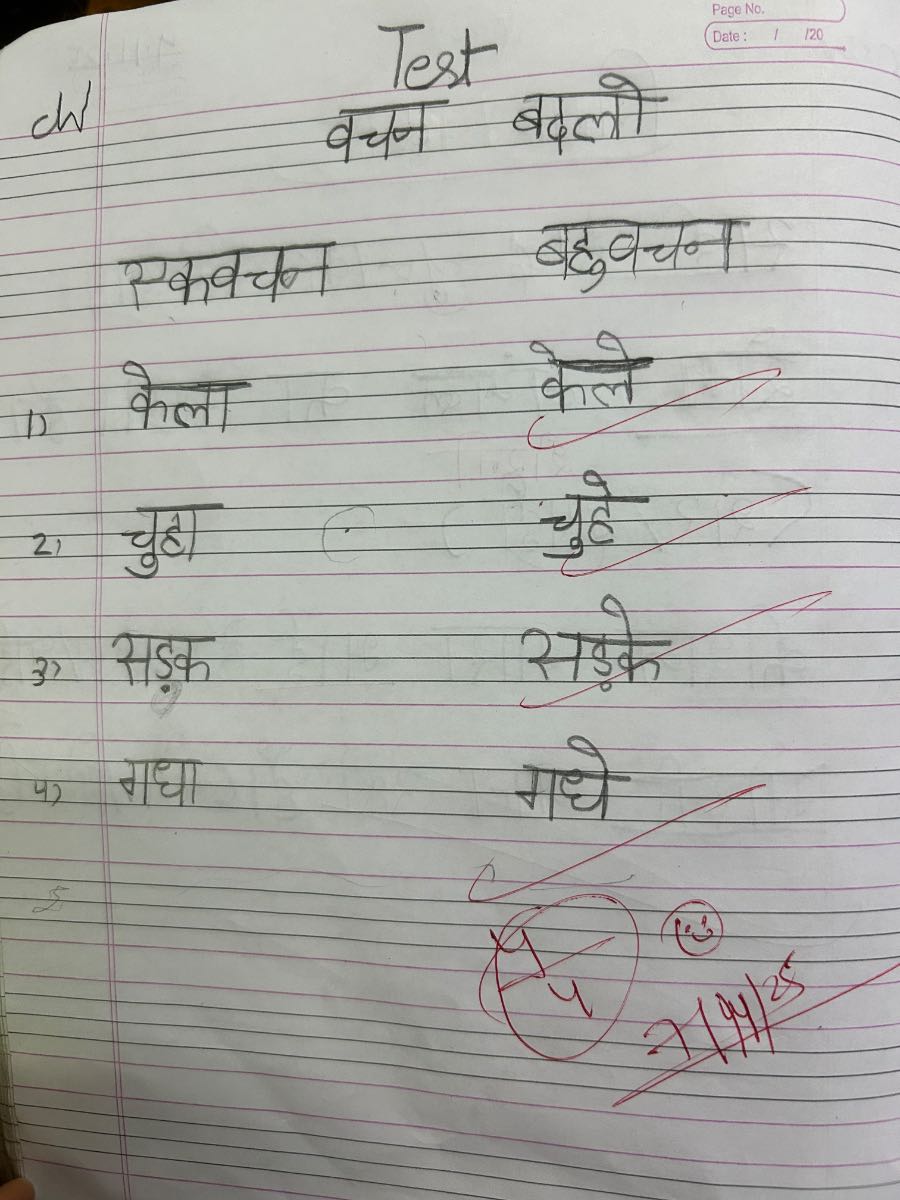 Page No.
Date : / /20
Test
CW
वचन बदलो
एकवचन बहुवचन
1) केला केले
2) चुहा चुहे
3) सड़क सड़के
4) गधा गधे
5
4/4